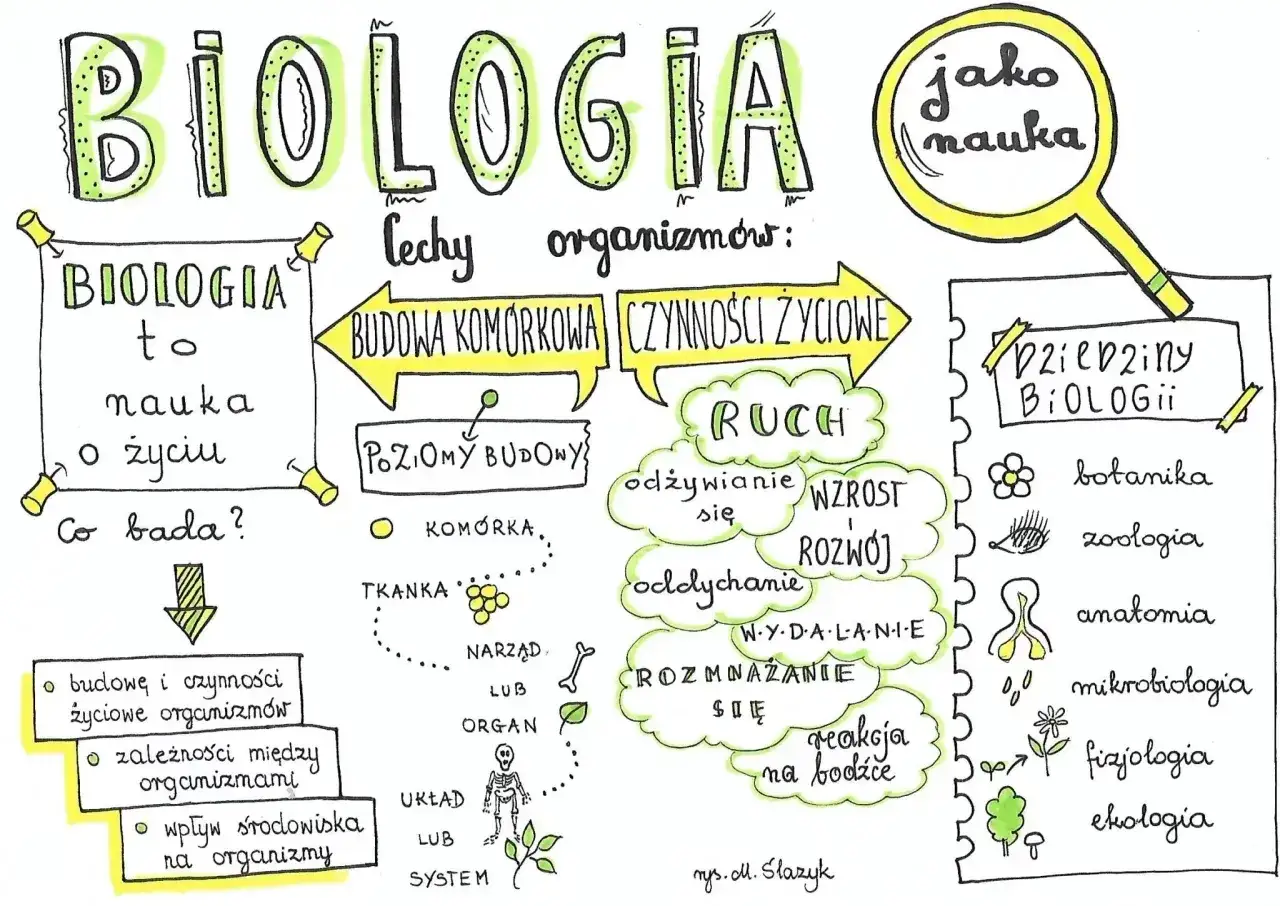 BIOLOGIA
jako
nauka
BIOLOGIA
to
nauka
o życiu
Co bada?
budowę i czynności
życiowe organizmów
zależności między
organizmami
wpływ środowiska
na organizmy
Cechy organizmów:
BUDOWA KOMÓRKOWA
POZIOMY BUDOWY
KOMÓRKA
TKANKA
NARZĄD
LUB
ORGAN
UKŁAD
LUB
SYSTEM
CZYNNOŚCI ŻYCIOWE
RUCH
odżywianie
się
WZROST
i
ROZWÓJ
oddychanie
W·Y·D·A·L·A·N·I·E
ROZMNAŻANIE
SIĘ
reakcja
na bodźce
rys. M. Ślazyk
DZIEDZINY
BIOLOGII
botanika
zoologia
anatomia
mikrobiologia
fizjologia
ekologia